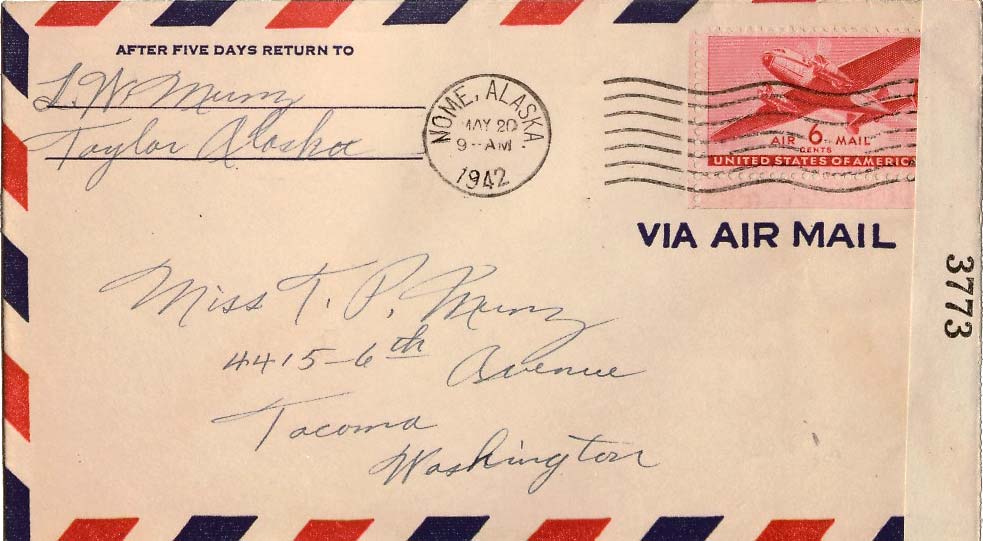 AFTER FIVE DAYS RETURN TO
L. W. Munz
Taylor Alaska
NOME, ALASKA.
MAY 20
9-AM
1942
AIR 6 MAIL
CENTS
UNITED STATES OF AMERICA
VIA AIR MAIL
3773
Miss T. P. Munz
4415-6th Avenue
Tacoma
Washington